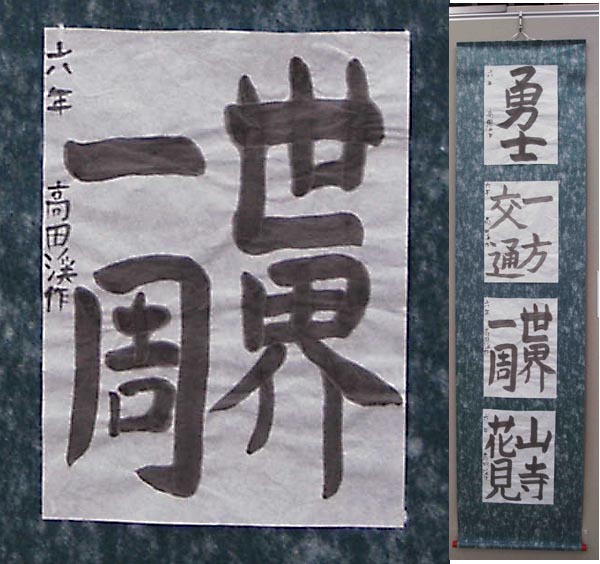 世界
一周
六年 高田渓作
勇士
一方
交通
世界
一周
山寺
花見